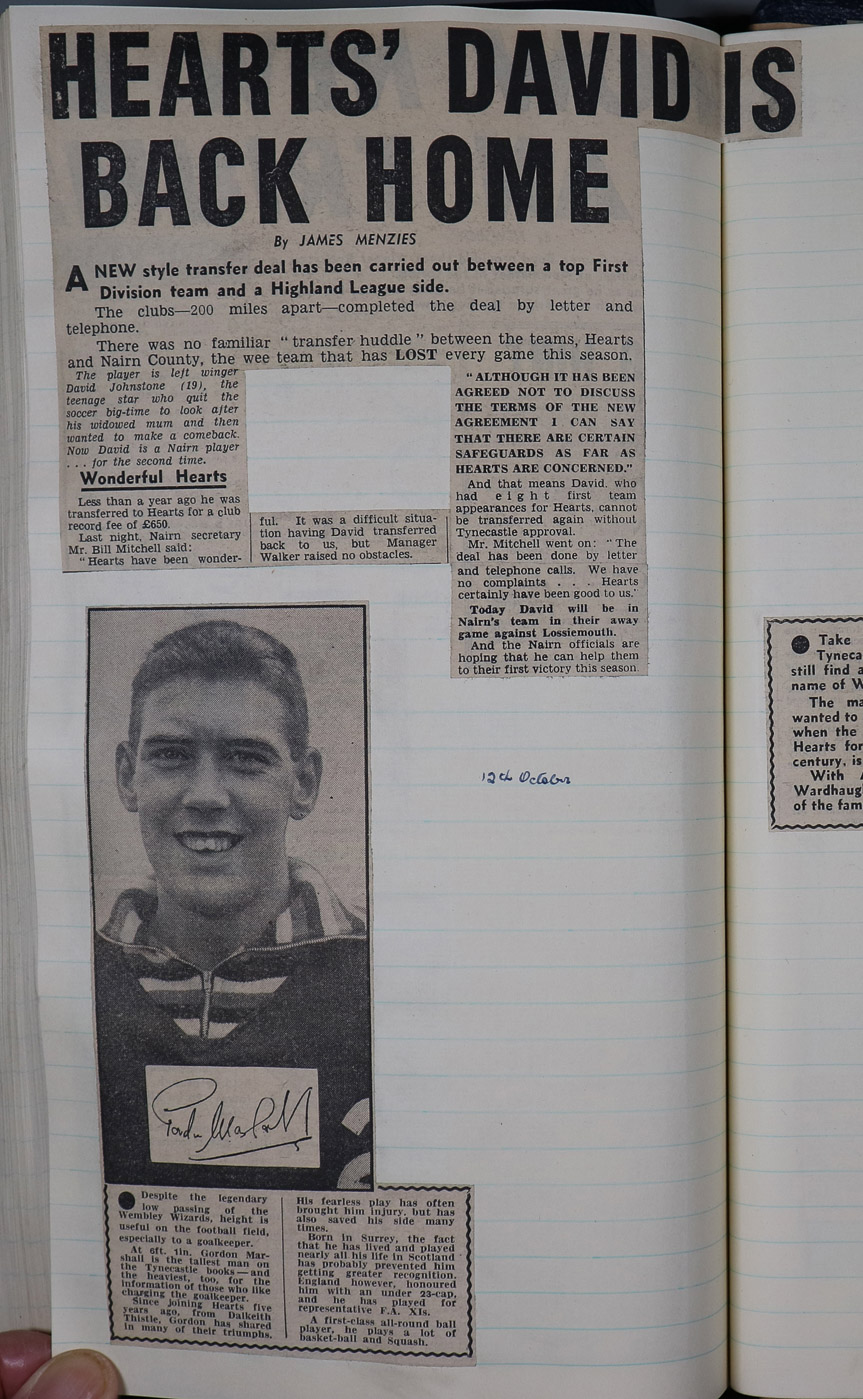 HEARTS' DAVID IS
BACK HOME
By JAMES MENZIES
A NEW style transfer deal has been carried out between a top First
Division team and a Highland League side.
The clubs—200 miles apart—completed the deal by letter and
telephone.
There was no familiar "transfer huddle" between the teams, Hearts
and Nairn County, the wee team that has LOST every game this season.
The player is left winger
David Johnstone (19), the
teenage star who quit the
soccer big-time to look after
his widowed mum and then
wanted to make a comeback.
Now David is a Nairn player
. . . for the second time.
Wonderful Hearts
Less than a year ago he was
transferred to Hearts for a club
record fee of £650.
Last night, Nairn secretary
Mr. Bill Mitchell said:
"Hearts have been wonder-
ful. It was a difficult situa-
tion having David transferred
back to us, but Manager
Walker raised no obstacles.
"ALTHOUGH IT HAS BEEN
AGREED NOT TO DISCUSS
THE TERMS OF THE NEW
AGREEMENT I CAN SAY
THAT THERE ARE CERTAIN
SAFEGUARDS AS FAR AS
HEARTS ARE CONCERNED."
And that means David, who
had eight first team
appearances for Hearts, cannot
be transferred again without
Tynecastle approval.
Mr. Mitchell went on: "The
deal has been done by letter
and telephone calls. We have
no complaints . . . Hearts
certainly have been good to us."
Today David will be in
Nairn's team in their away
game against Lossiemouth.
And the Nairn officials are
hoping that he can help them
to their first victory this season.
12th October
Gordon Marshall
Despite the legendary
low passing of the
Wembley Wizards, height is
useful on the football field,
especially to a goalkeeper.
At 6ft. 1in. Gordon Mar-
shall is the tallest man on
the Tynecastle books—and
the heaviest, too, for the
information of those who like
charging the goalkeeper.
Since joining Hearts five
years ago, from Dalkeith
Thistle, Gordon has shared
in many of their triumphs.
His fearless play has often
brought him injury, but has
also saved his side many
times.
Born in Surrey, the fact
that he has lived and played
nearly all his life in Scotland
has probably prevented him
getting greater recognition.
England however, honoured
him with an under 23-cap,
and he has played for
representative F.A. XIs.
A first-class all-round ball
player, he plays a lot of
basket-ball and Squash.
Take
Tyneca
still find a
name of W
The ma
wanted to
when the
Hearts for
century, is
With A
Wardhaug
of the fam